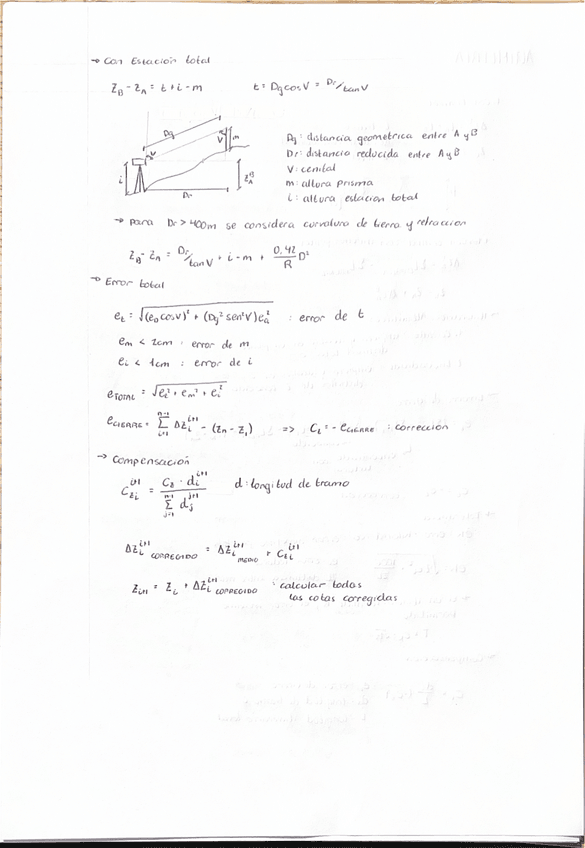 → Con Estación total
Z_B - Z_A = t + i - m t = Dg cos V = Dr/tan V
Dg
V
m
i
Z_A^B
Dr
Dg: distancia geometrica entre A y B
Dr: distancia reducida entre A y B
V: cenital
m: altura prisma
i: altura estacion total
→ para Dr > 400m se considera curvatura de tierra y refraccion
Z_B - Z_A = Dr/tan V + i - m + 0,42/R D²
→ Error total
e_t = √((e_D cos V)² + (Dg² sen² V) e_a²) : error de t
e_m < 2cm : error de m
e_i < 1cm : error de i
e_TOTAL = √(e_t² + e_m² + e_i²)
e_CIERRE = Σ_{i=1}^{n-1} ΔZ_i^{i+1} - (Z_n - Z_1) => C_t = - e_CIERRE : correccion
→ Compensación
C_{z i}^{i+1} = C_t · d_i^{i+1} / Σ_{j=1}^{n-1} d_j^{j+1} d: longitud de tramo
ΔZ_i^{i+1} CORREGIDO = ΔZ_i^{i+1} MEDIO + C_{z i}^{i+1}
Z_{i+1} = Z_i + ΔZ_i^{i+1} CORREGIDO : calcular todas
las cotas corregidas